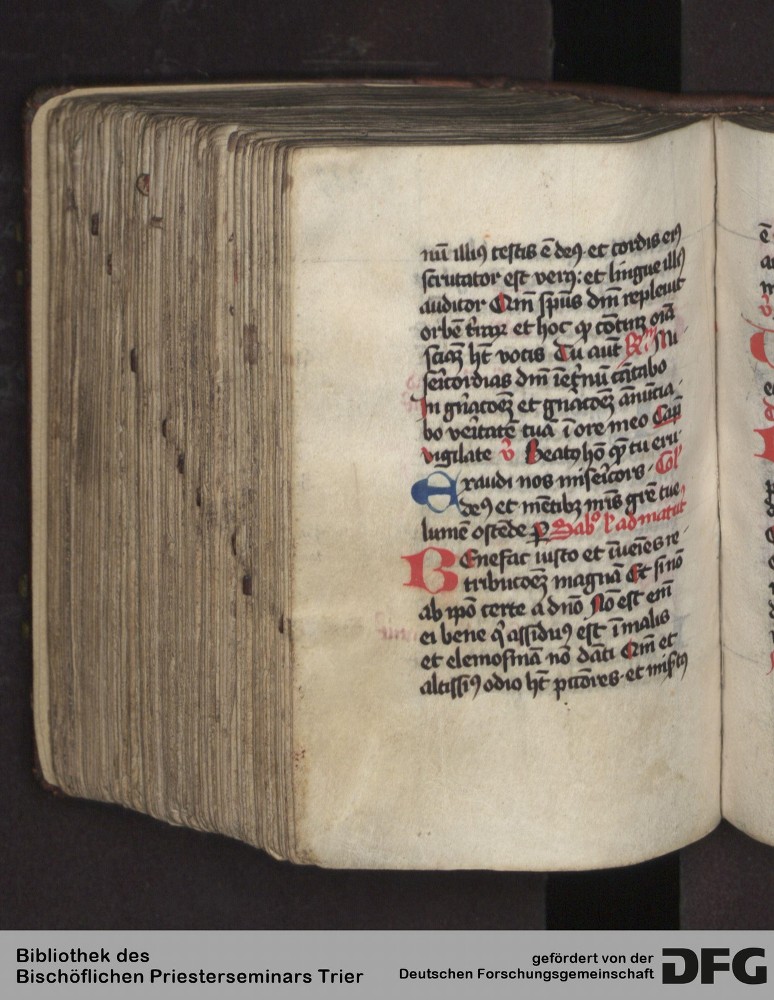 nū illiꝰ testis ē deꝰ et cordis eiꝰ
scrutator est verꝰ: et lingue illiꝰ
auditor Qm̄ spūs dm̄ repleuit
orbē t̄rarꝝ et hoc qͥ cōtinꝫ oīa
sciaꝫ hꝫ vocis Tu aūt Mi-
sēicordias dm̄ īet̓nū cātabo
In gn̄acoēꝫ et gn̄acoēꝫ ānūcia-
bo veītatē tuā ī ore meo Capl̓
vigilate v̓ Beatꝰ hō qͥ tu eru-
Exaudi nos misēicors Coll̓
deꝰ et mētibꝫ nr̄is grē tue
lumē ostēde ꝑ Sabͦ l̓ ad matut̓
BEnefac iusto et īueīes re-
tribucoēꝫ magnā Et si nō
ab ip̄o certe a dn̄o Nō est em̄
ei bene qͥ assiduꝰ est ī malis
et elemosinā nō dāti Qm̄ et
altissiꝰ odio hꝫ pc̄cōres et misc̓tꝰ
Bibliothek des
Bischöflichen Priesterseminars Trier
gefördert von der
Deutschen Forschungsgemeinschaft
DFG